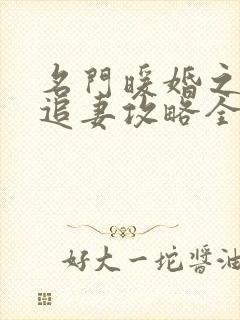 名門暖婚之
追妻攻略全
好大一坨醬油